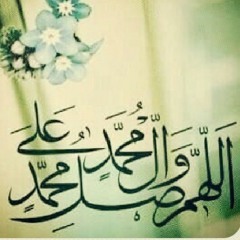 اَللّهُمَّ صَلِّ عَلَی مُحَمَّدٍ وَآلِ مُحَمَّد